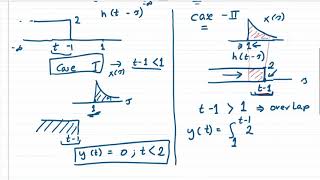 h(t-s)
2
-∞
t-1
1
-∞
Case I
t-1<1
x(s)
s
1
t-1
y(t) = 0 ; t<2
case -II
x(s)
1
h(t-s)
2
s
t-1
t-1 > 1 ⇒ overlap
y(t) = ∫₁^{t-1} 2